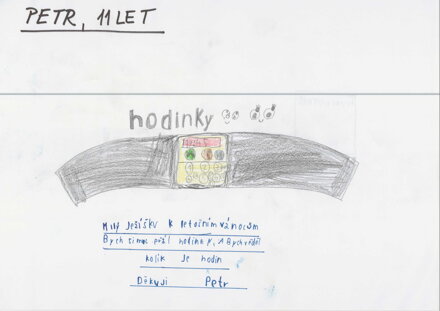 PETR, 11 LET
hodinky
Milý Ježíšku k letošním vánocům
Bych si moc přál hodinky, Abych věděl
kolik je hodin
Děkuji Petr